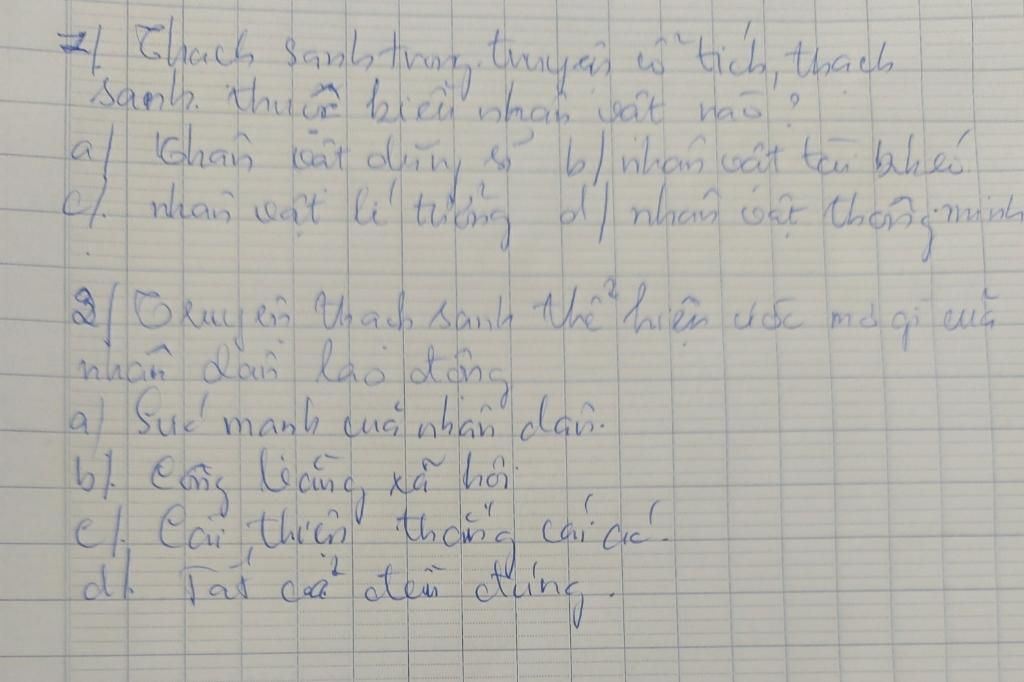 1/ Thạch Sanh trong truyện cổ tích, thạch
sanh thuộc kiểu nhân vật nào?
a/ Nhân vật dũng sĩ b/ nhân vật tài khéo
c/ nhân vật lí tưởng d/ nhân vật thông minh
2/ Truyện thạch sanh thể hiện ước mơ gì của
nhân dân lao động
a/ Sức mạnh của nhân dân.
b/ Công bằng xã hội
c/ Cái thiện thắng cái ác.
d/ Tất cả đều đúng.